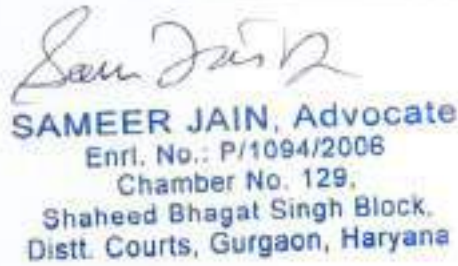 SAMEER JAIN, Advocate
Enrl. No.: P/1094/2006
Chamber No. 129,
Shaheed Bhagat Singh Block,
Distt. Courts, Gurgaon, Haryana